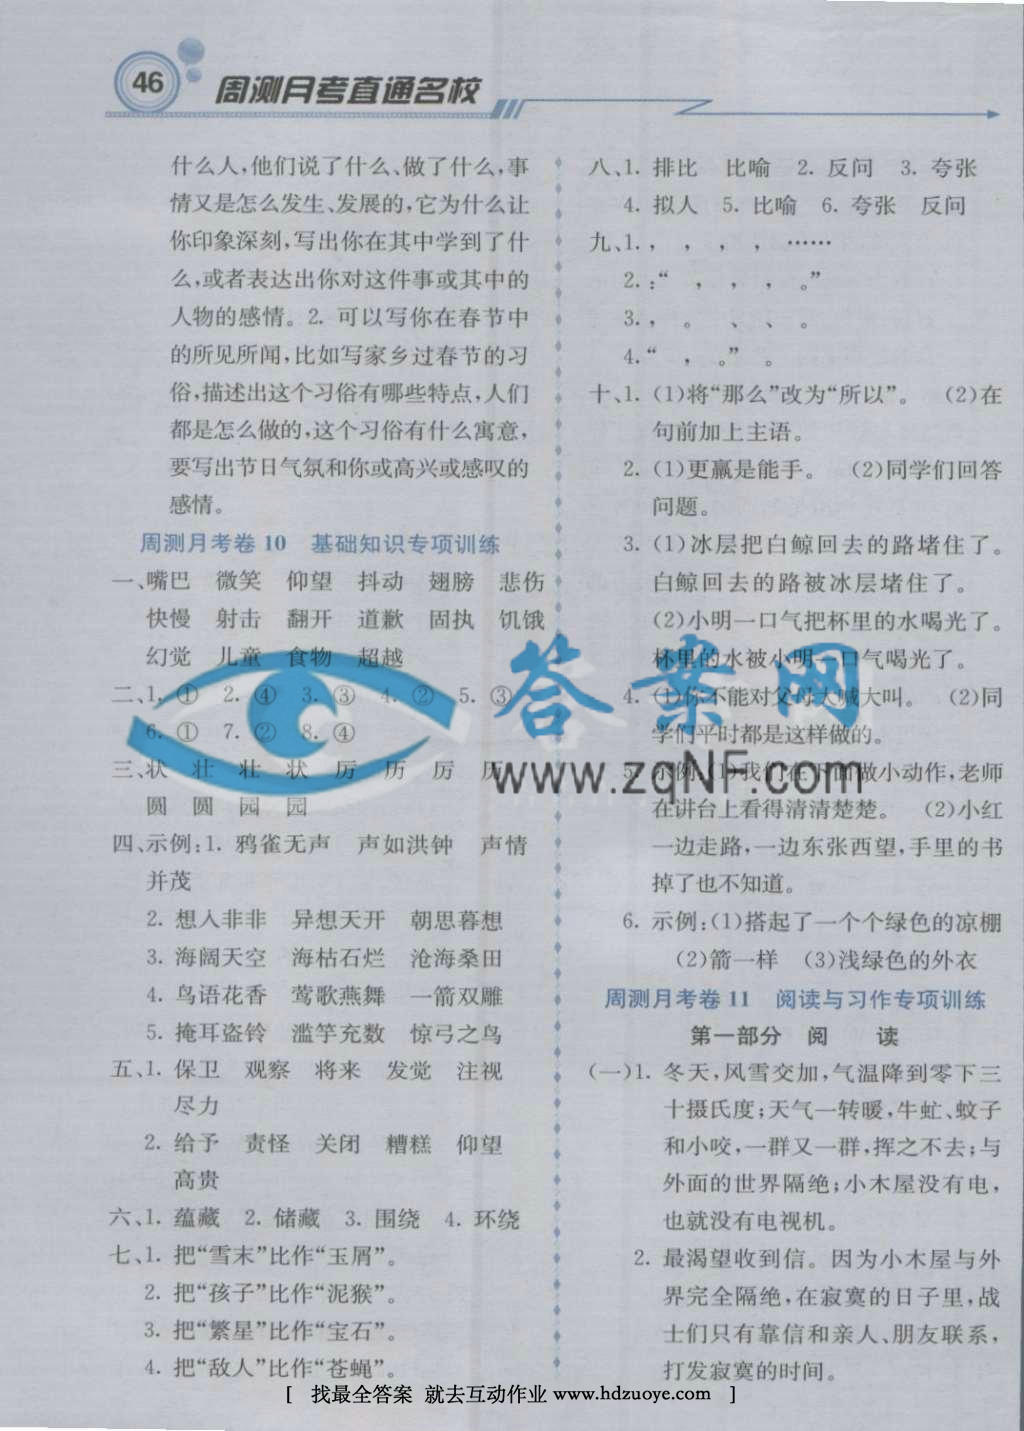 46
周测月考直通名校
什么人,他们说了什么、做了什么,事
情又是怎么发生、发展的,它为什么让
你印象深刻,写出你在其中学到了什
么,或者表达出你对这件事或其中的
人物的感情。2. 可以写你在春节中
的所见所闻,比如写家乡过春节的习
俗,描述出这个习俗有哪些特点,人们
都是怎么做的,这个习俗有什么寓意,
要写出节日气氛和你或高兴或感叹的
感情。
周测月考卷 10 基础知识专项训练
一、嘴巴 微笑 仰望 抖动 翅膀 悲伤
快慢 射击 翻开 道歉 固执 饥饿
幻觉 儿童 食物 超越
二、1. ① 2. ④ 3. ③ 4. ② 5. ③
6. ① 7. ② 8. ④
三、状 壮 壮 状 厉 历 厉 历
圆 圆 园 园
四、示例:1. 鸦雀无声 声如洪钟 声情
并茂
2. 想入非非 异想天开 朝思暮想
3. 海阔天空 海枯石烂 沧海桑田
4. 鸟语花香 莺歌燕舞 一箭双雕
5. 掩耳盗铃 滥竽充数 惊弓之鸟
五、1. 保卫 观察 将来 发觉 注视
尽力
2. 给予 责怪 关闭 糟糕 仰望
高贵
六、1. 蕴藏 2. 储藏 3. 围绕 4. 环绕
七、1. 把“雪末”比作“玉屑”。
2. 把“孩子”比作“泥猴”。
3. 把“繁星”比作“宝石”。
4. 把“敌人”比作“苍蝇”。
八、1. 排比 比喻 2. 反问 3. 夸张
4. 拟人 5. 比喻 6. 夸张 反问
九、1. , , , , ……
2. :“ , , , 。”
3. , 。 、 、 。
4. “ , 。” 。
十、1. (1)将“那么”改为“所以”。 (2)在
句前加上主语。
2. (1)更羸是能手。 (2)同学们回答
问题。
3. (1)冰层把白鲸回去的路堵住了。
白鲸回去的路被冰层堵住了。
(2)小明一口气把杯里的水喝光了。
杯里的水被小明一口气喝光了。
4. (1)你不能对父母大喊大叫。 (2)同
学们平时都是这样做的。
5. 示例:(1)我们在下面做小动作,老师
在讲台上看得清清楚楚。 (2)小红
一边走路,一边东张西望,手里的书
掉了也不知道。
6. 示例:(1)搭起了一个个绿色的凉棚
(2)箭一样 (3)浅绿色的外衣
周测月考卷 11 阅读与习作专项训练
第一部分 阅 读
(一)1. 冬天,风雪交加,气温降到零下三
十摄氏度;天气一转暖,牛虻、蚊子
和小咬,一群又一群,挥之不去;与
外面的世界隔绝;小木屋没有电,
也就没有电视机。
2. 最渴望收到信。因为小木屋与外
界完全隔绝,在寂寞的日子里,战
士们只有靠信和亲人、朋友联系,
打发寂寞的时间。
答案网
www.zqNF.com
[ 找最全答案 就去互动作业 www.hdzuoye.com ]